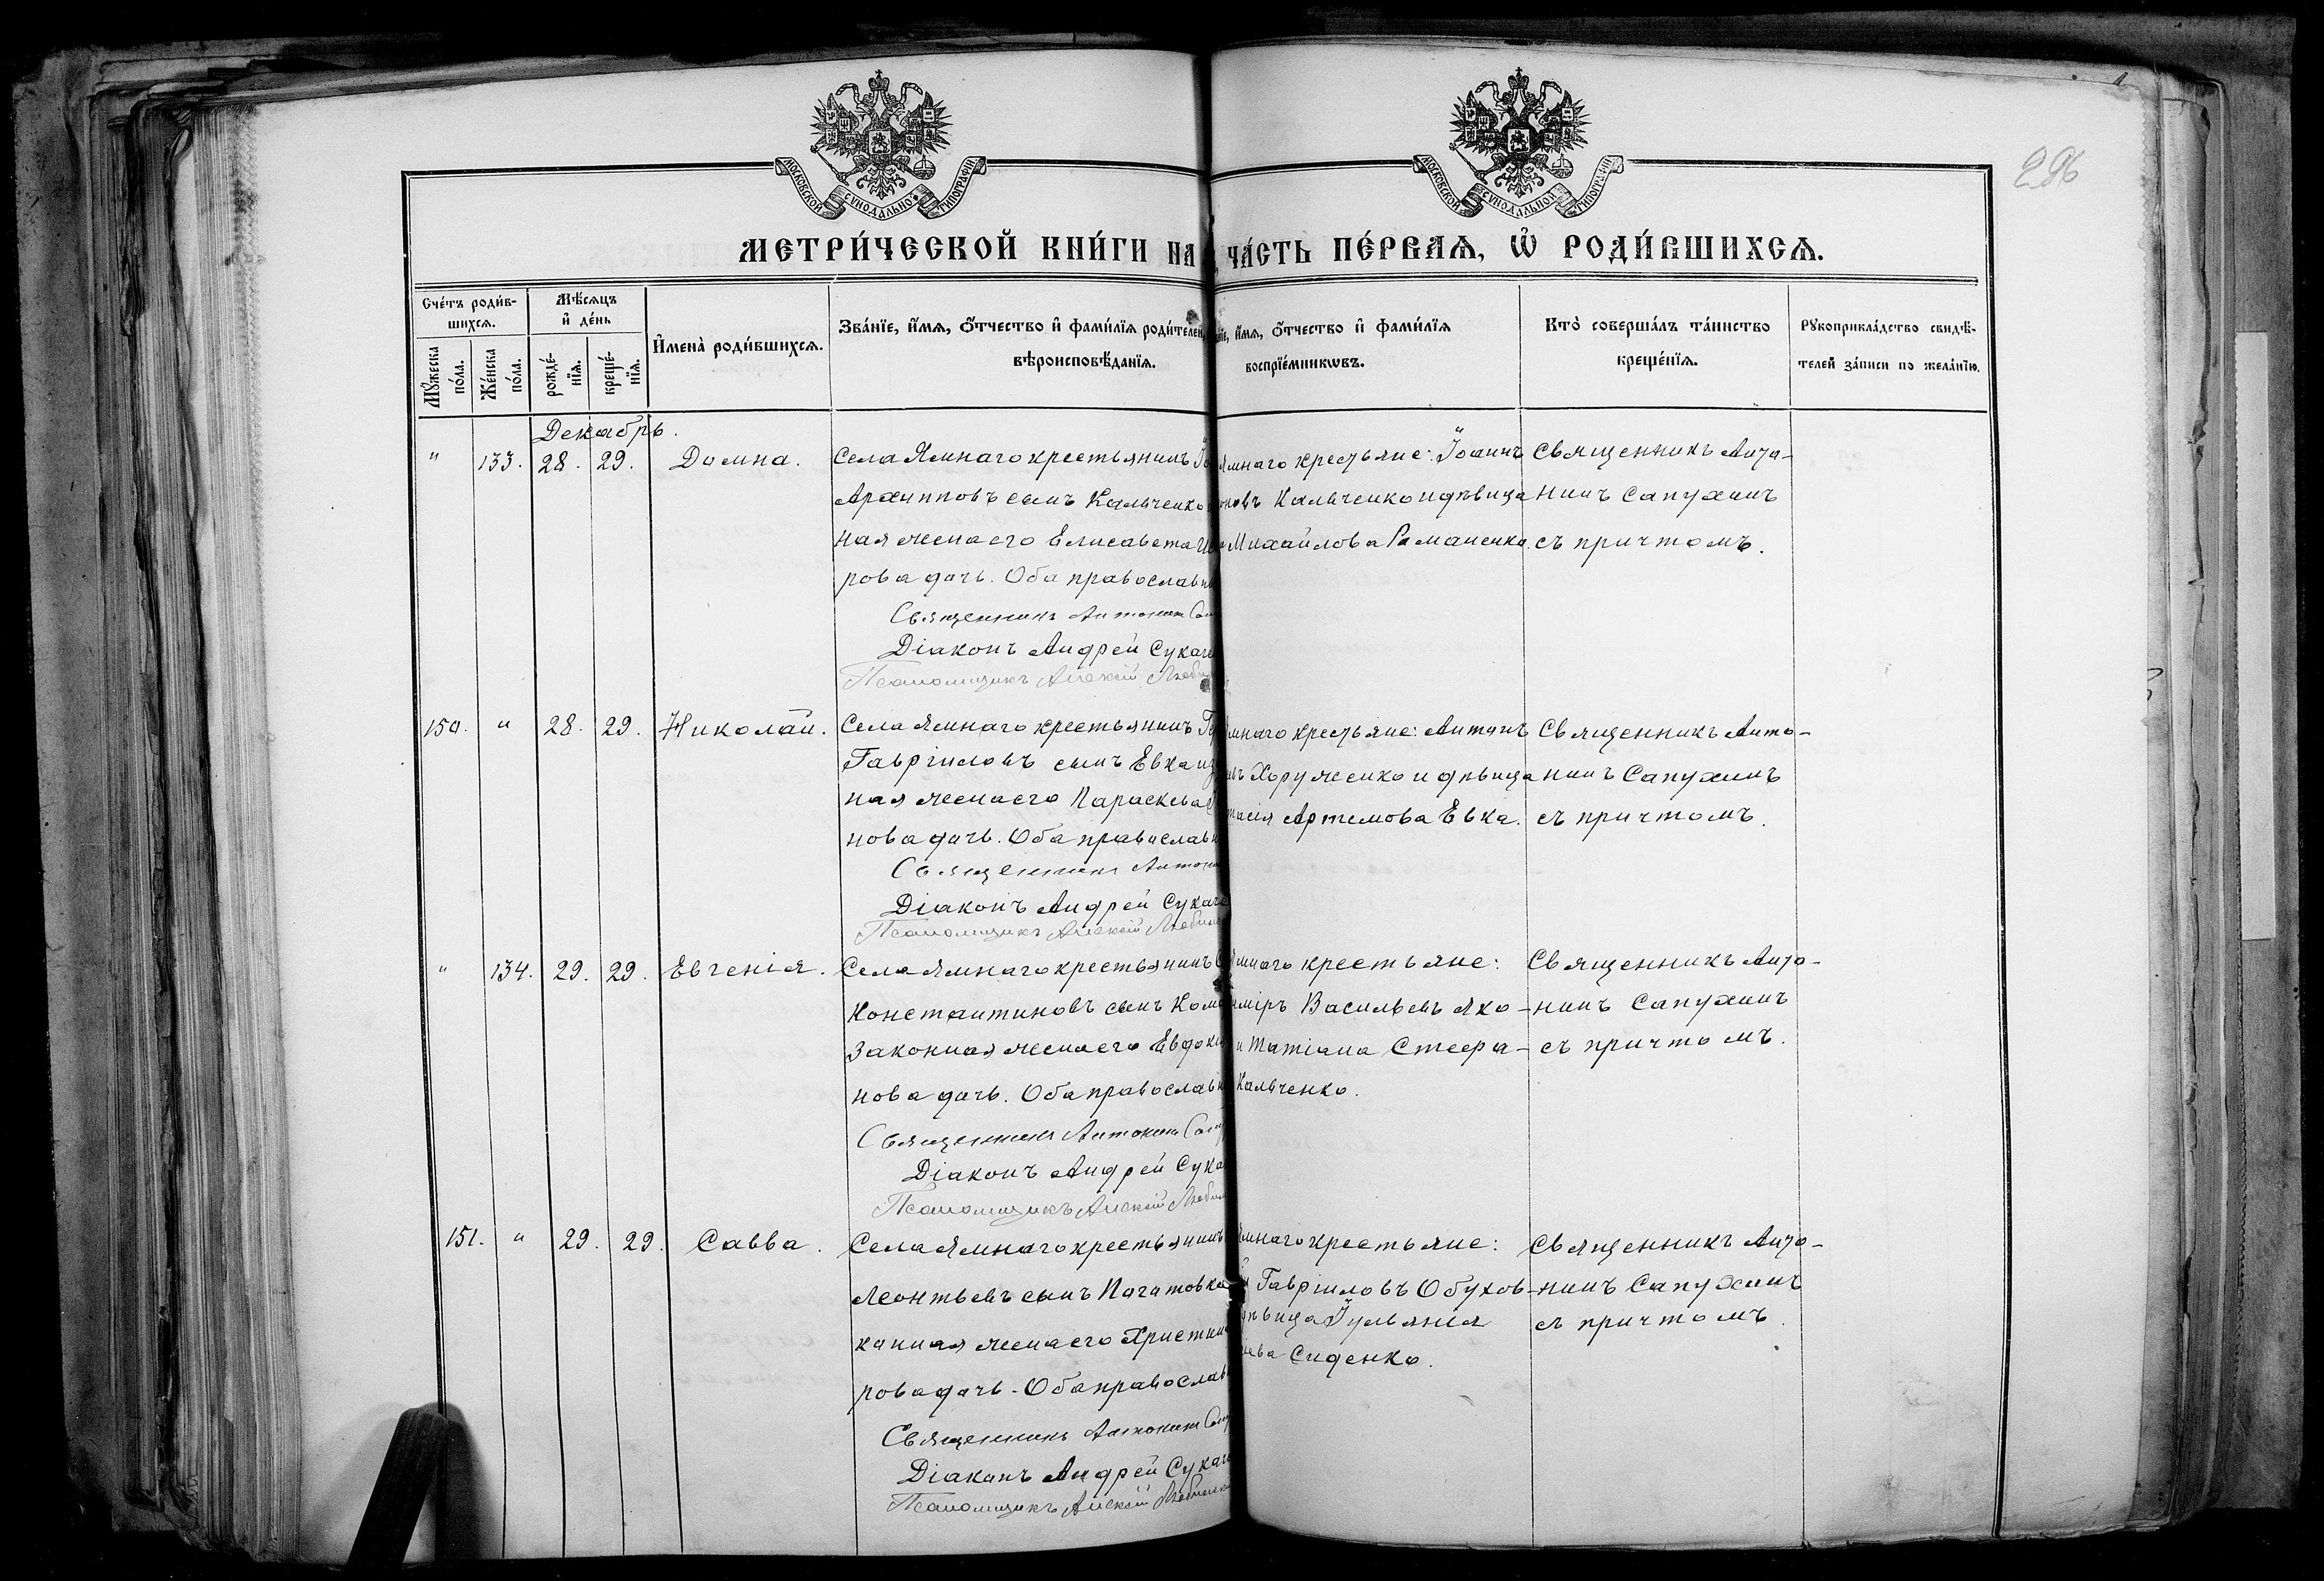 МОСКОВСКОЙ СУНОДАЛЬНОЙ ТИПОГРАФІИ
МОСКОВСКОЙ СУНОДАЛЬНОЙ ТИПОГРАФІИ
296
МЕТРИ́ЧЕСКОЙ КНИ́ГИ НА
ЧА́СТЬ ПЕ́РВАѦ, Ѡ҆ РОДИ́ВШИХСѦ.
Сче́тъ роди́в-
шихсѧ.
Мѣ́сѧцъ
и҆ де́нь
Мꙋ́жеска
по́ла.
Же́нска
по́ла.
рожде́-
нїѧ.
креще́-
нїѧ.
И҆мена̀ роди́вшихсѧ.
Зва́нїе, и҆́мѧ, ѻ҆́тчество и҆ фами́лїѧ роди́телей,
вѣроисповѣ́данїѧ.
и҆́мѧ, ѻ҆́тчество и҆ фами́лїѧ
воспрїе́мникѡвъ.
Кто̀ соверша́лъ та́инство
креще́нїѧ.
Рꙋкоприкла́дство свидѣ́-
телей за́писи по жела́нїю.
Декабрь.
" 133. 28. 29. Домна.
Села Ямнаго крестьянинъ
Архипповъ сынъ Кальченко
ная жена его Елисавета
рова дочь. Оба православн
Священникъ Антонин
Діаконъ Андрей Сукач
Псаломщикъ Алексій Любиц
Ямнаго крестьяне: Іоаннъ
новъ Кальченко и дѣвица
Михайлова Романенко.
Священникъ Анто-
нинъ Сапухинъ
съ причтомъ.
150. " 28. 29. Николай.
Села Ямнаго крестьянинъ
Гавріиловъ сынъ Евка и
ная жена его Параскева
нова дочь. Оба православн
Священникъ Антони
Діаконъ Андрей Сукаче
Псаломщикъ Алексій Любиц
мнаго крестьяне: Антонъ
въ Хоруженко и дѣвица
тасія Артемова Евка.
Священникъ Анто-
нинъ Сапухинъ
съ причтомъ.
" 134. 29. 29. Евгенія.
Села Ямнаго крестьянинъ
Константиновъ сынъ Ком
законная жена его Евдоки
нова дочь. Оба православн
Священникъ Антонин Сапу
Діаконъ Андрей Сука
Псаломщикъ Алексій Любиц
Ямнаго крестьяне:
иміръ Васильевъ Яко-
и Татіана Стефа-
Кальченко.
Священникъ Анто-
нинъ Сапухинъ
съ причтомъ.
151. " 29. 29. Савва.
Села Ямнаго крестьянинъ
Леонтьевъ сынъ Пагатовка
конная жена его Христин
рова дочь. Оба православ
Священникъ Антонин Сапу
Діаконъ Андрей Сукаче
Псаломщикъ Алексій Любицк
Ямнаго крестьяне:
Гавріиловъ Обухов-
дѣвица Іульянія
ева Сиденко.
Священникъ Анто-
нинъ Сапухинъ
съ причтомъ.